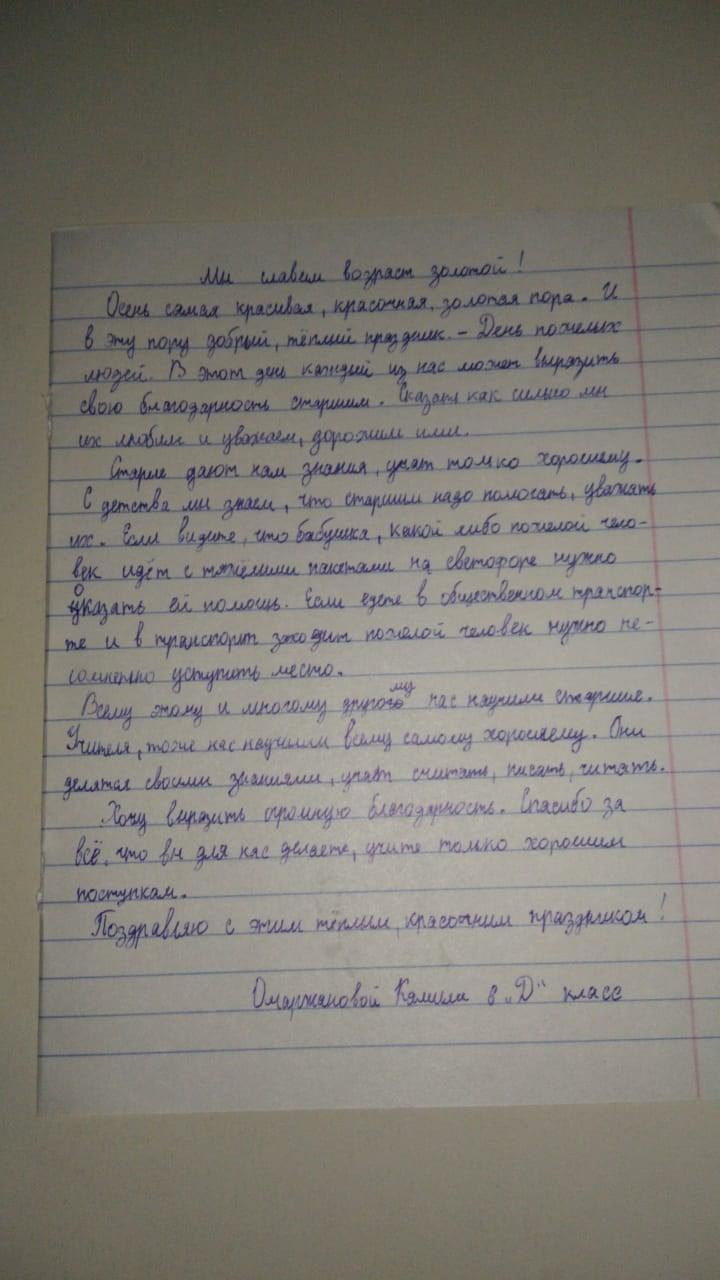 Мы славим возраст золотой!
Осень самая красивая, красочная, золотая пора. И
в эту пору добрый, тёплый праздник. - День пожилых
людей. В этот день каждый из нас может выразить
свою благодарность старшим. Сказать как сильно мы
их любим и уважаем, дорожим ими.
Старшие дают нам знания, учат только хорошему.
С детства мы знаем, что старшим надо помогать, уважать
их. Если видите, что бабушка, какой либо пожилой чело-
век идёт с тяжёлыми пакетами на светофоре нужно
оказать ей помощь. Если едете в общественном транспор-
те и в транспорт заходит пожилой человек нужно не-
сомненно уступить место.
Всему этому и многому другому нас научили старшие.
Учителя, тоже нас научили всему самому хорошему. Они
делятся своими знаниями, учат считать, писать, читать.
Хочу выразить огромную благодарность. Спасибо за
всё, что вы для нас делаете, учите только хорошим
поступкам.
Поздравляю с этим тёплым, красочным праздником!
Омаржановой 8 „Д" класс